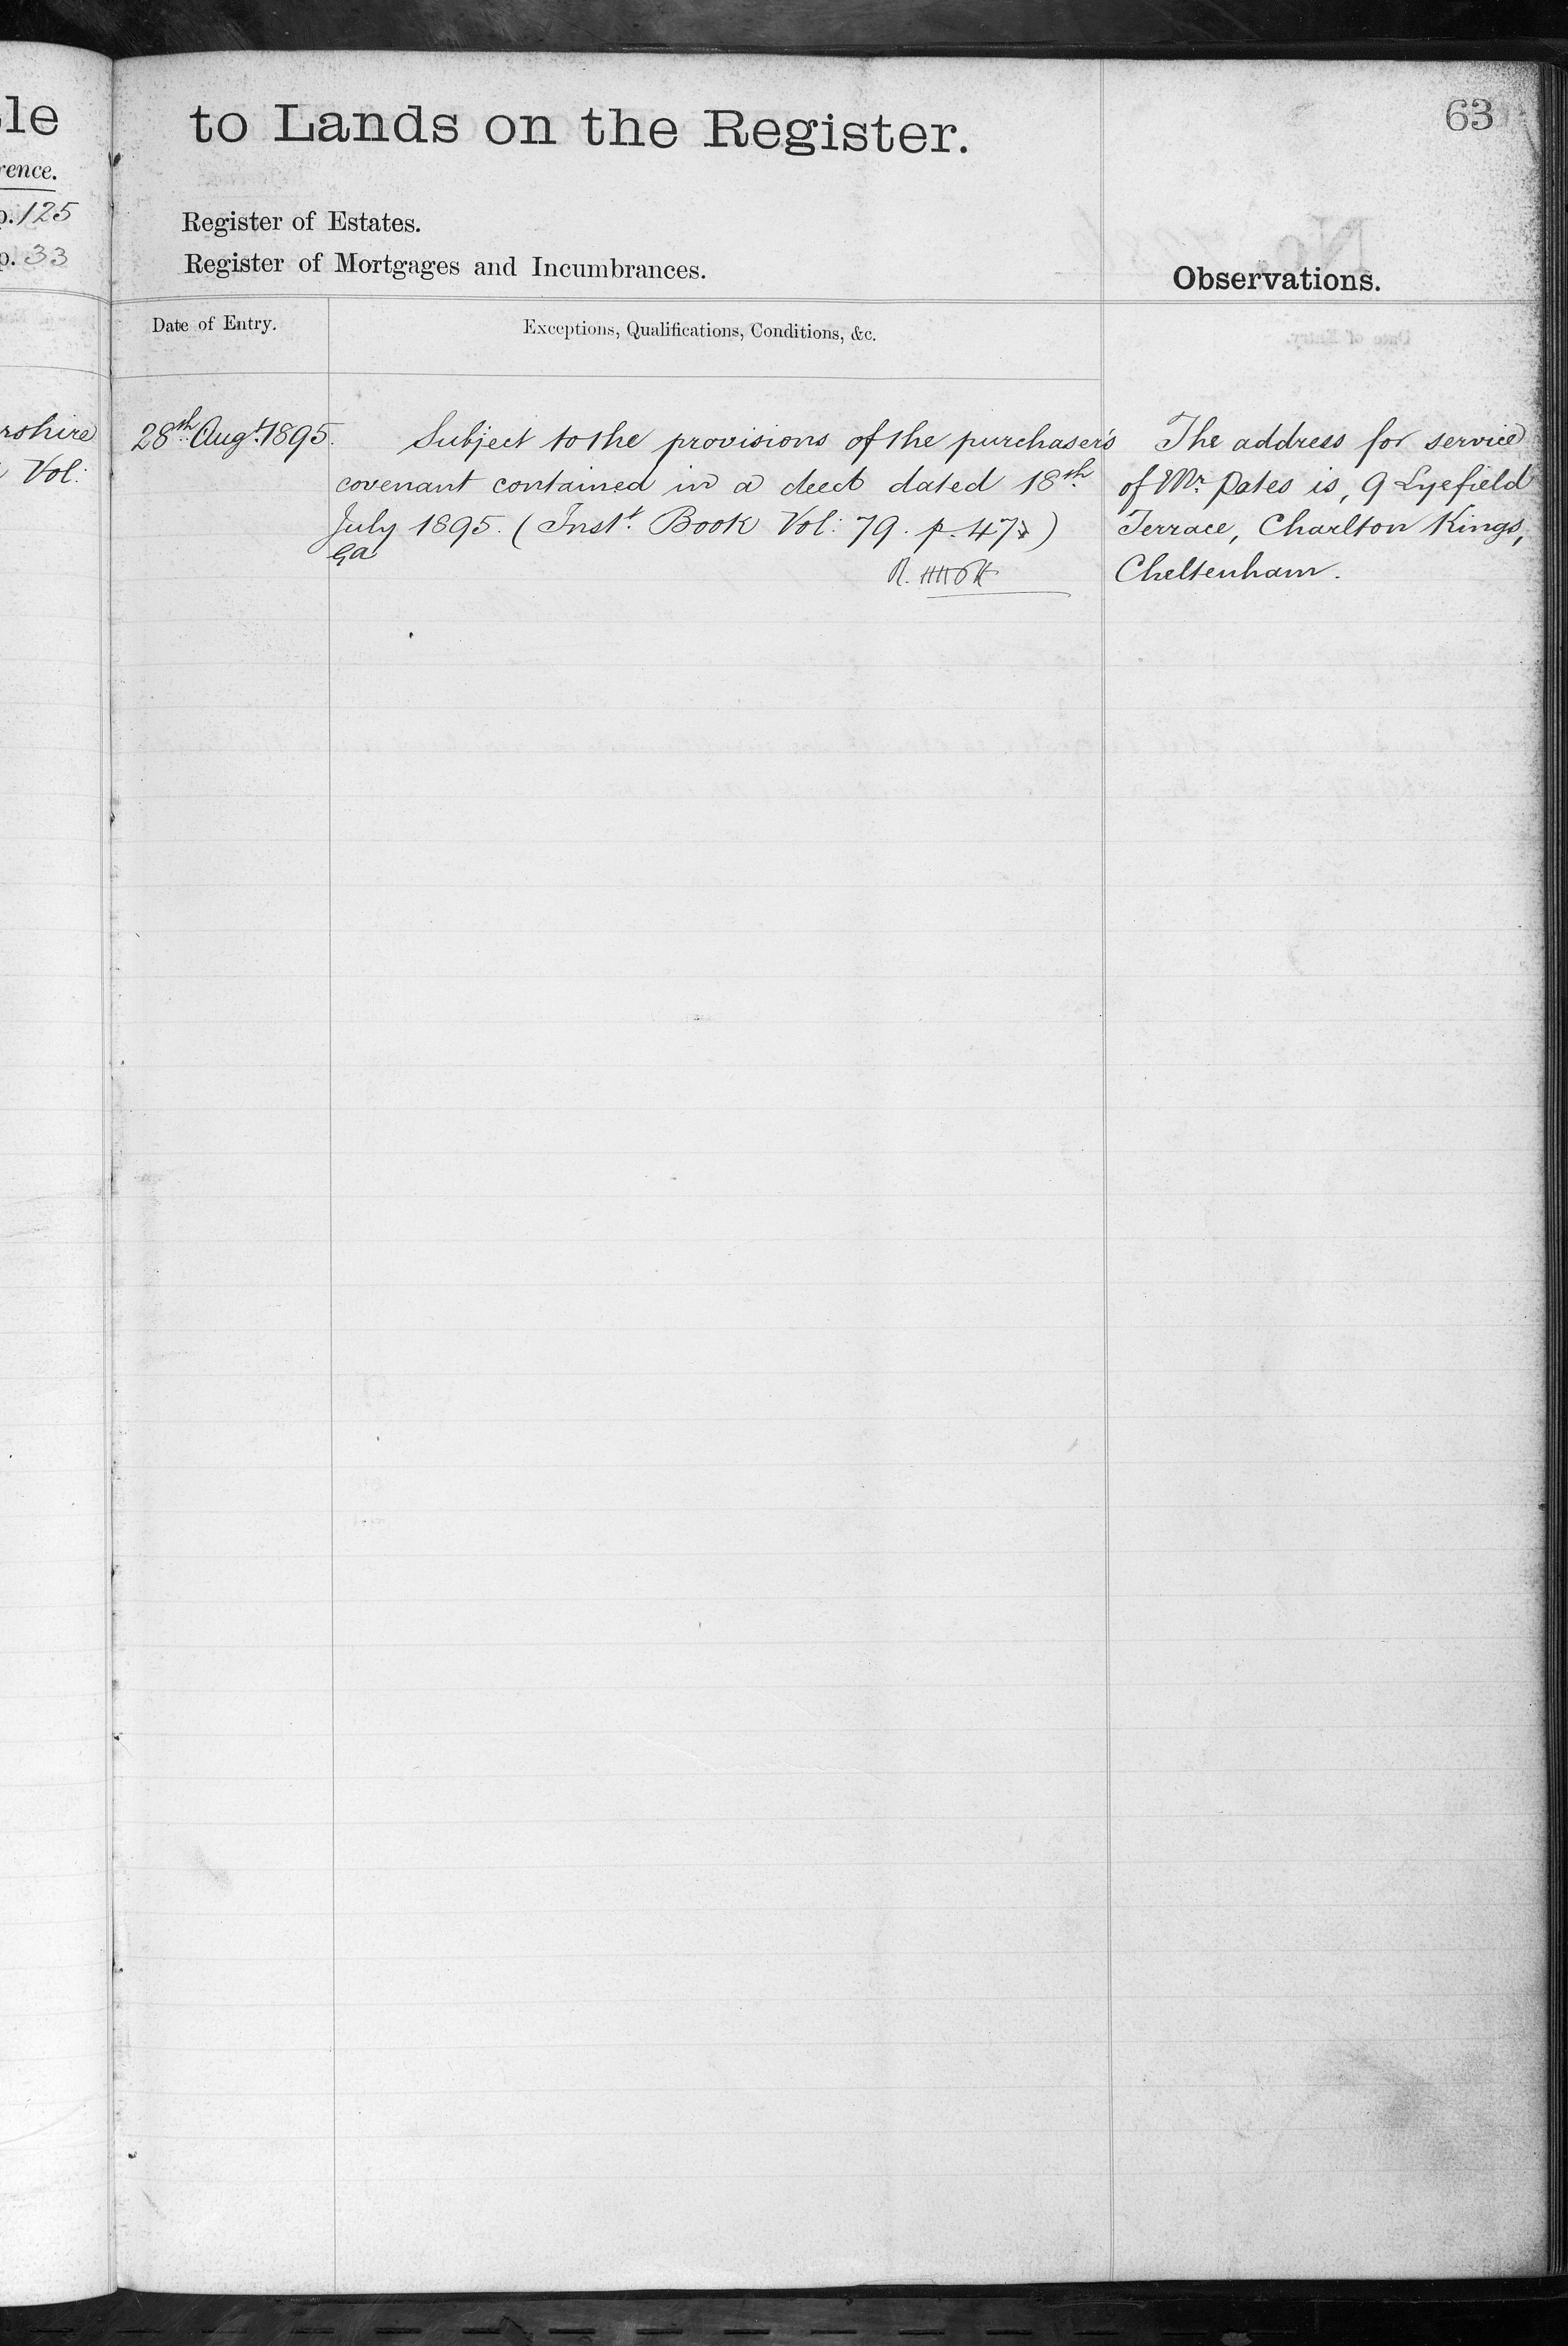 le
rence.
p. 125
p. 33
rshire
Vol:
to Lands on the Register.
63
Register of Estates.
Register of Mortgages and Incumbrances.
Observations.
Date of Entry.
Exceptions, Qualifications, Conditions, &c.
28th Augt. 1895.
Subject to the provisions of the purchaser's
covenant contained in a deed dated 18th
July 1895. (Inst. Book Vol: 79. p. 47)
The address for service
of Mr. Pates is, 9 Lyefield
Terrace, Charlton Kings,
Cheltenham.